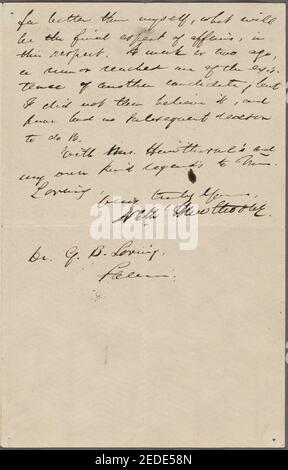 far better than myself, what will
be the final aspect of affairs, in
this respect. A week or two ago,
a rumor reached me of the exis-
tence of another candidate, but
I did not then believe it, and
have had no subsequent reason
to do so.
With Mrs. Hawthorne's and
my own kind regards to Mrs.
Loring,
Very truly Yours,
Nath Hawthorne.
Dr. G. B. Loring,
Salem.
alamy
Image ID: 2EDE58N
www.alamy.com